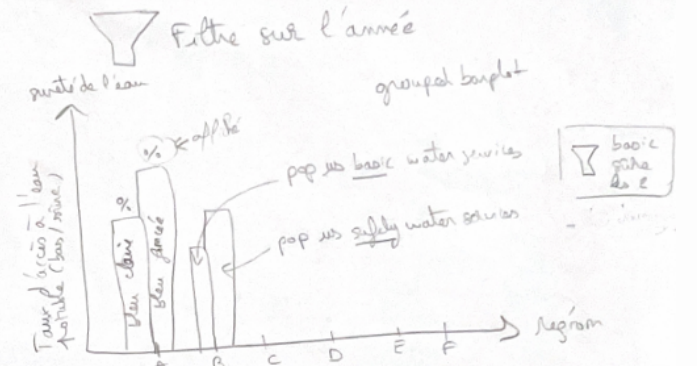 Filtre sur l'année
sureté de l'eau
grouped barplot
%
affiché
%
pop us basic water services
basic
sûre
les 2
pop us safely water services
Taux d'accès à l'eau
potable (bas/sûre)
bleu claire
bleu foncée
région
A B C D E F